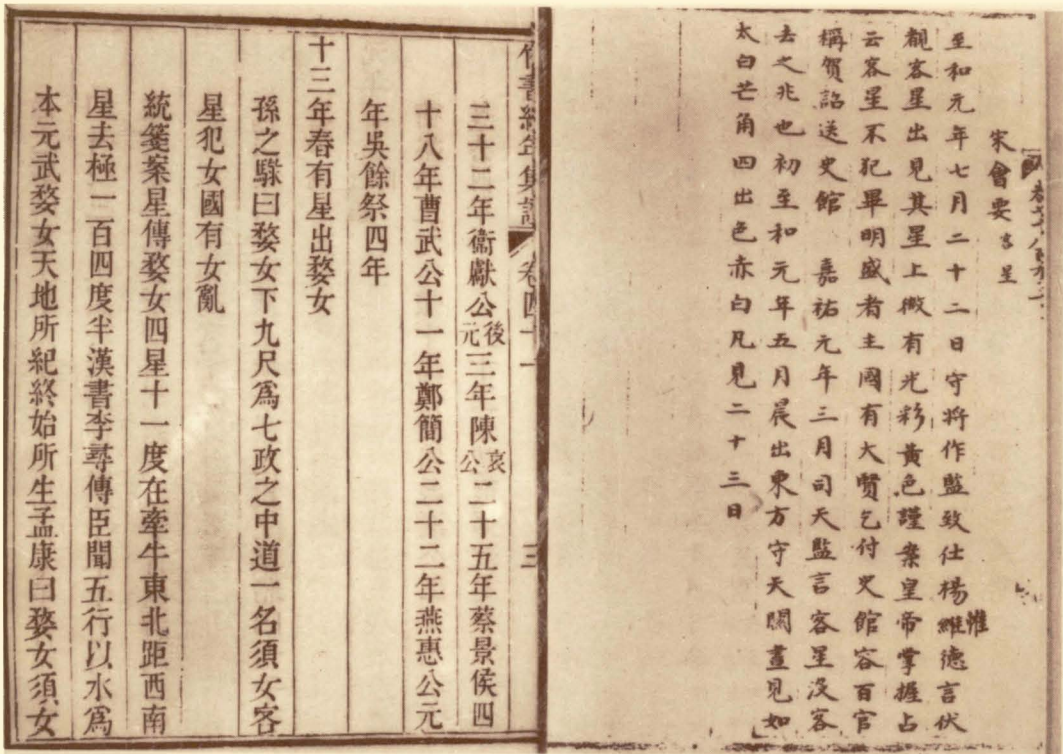 宋會要 客星
至和元年七月二十二日守將作監致仕楊維德言伏
惟
觀客星出見其星上微有光彩黃色謹案皇帝掌握占
云客星不犯畢明盛者主國有大賢乞付史館容百官
稱賀詔送史館 嘉祐元年三月司天監言客星沒客
去之兆也初至和元年五月晨出東方守天關晝見如
太白芒角四出色赤白凡見二十三日
竹書紀年集證 卷四十一 三
三十二年衞獻公後元三年陳哀公二十五年蔡景侯四
十八年曹武公十一年鄭簡公二十二年燕惠公元
年吳餘祭四年
十三年春有星出婺女
孫之騄曰婺女下九尺爲七政之中道一名須女客
星犯女國有女亂
統箋案星傳婺女四星十一度在牽牛東北距西南
星去極一百四度半漢書李尋傳臣聞五行以水爲
本元武婺女天地所紀終始所生孟康曰婺女須女